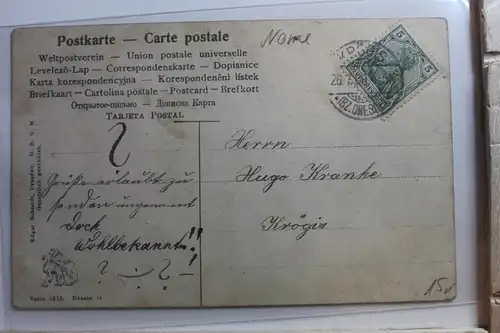 Postkarte — Carte postale
Weltpostverein — Union postale universelle
Levelező-Lap — Correspondenzkarte — Dopisnice
Karta korespondencyjna — Korespondenční lístek
Briefkaart — Cartolina postale — Postcard — Brefkort
Открытое письмо — Дописна Карта
TARJETA POSTAL
Name
5
5
(BZ. DRESD
Herrn
Hugo Kranke
Krögis
?
Grüße erlaubt zu
senden ungenannt
Doch
Wohlbekannt!!
? -:- ?
Edgar Schmidt, Dresden. D. R. G. M.
Gesetzlich geschützt.
Serie
Dessin
15